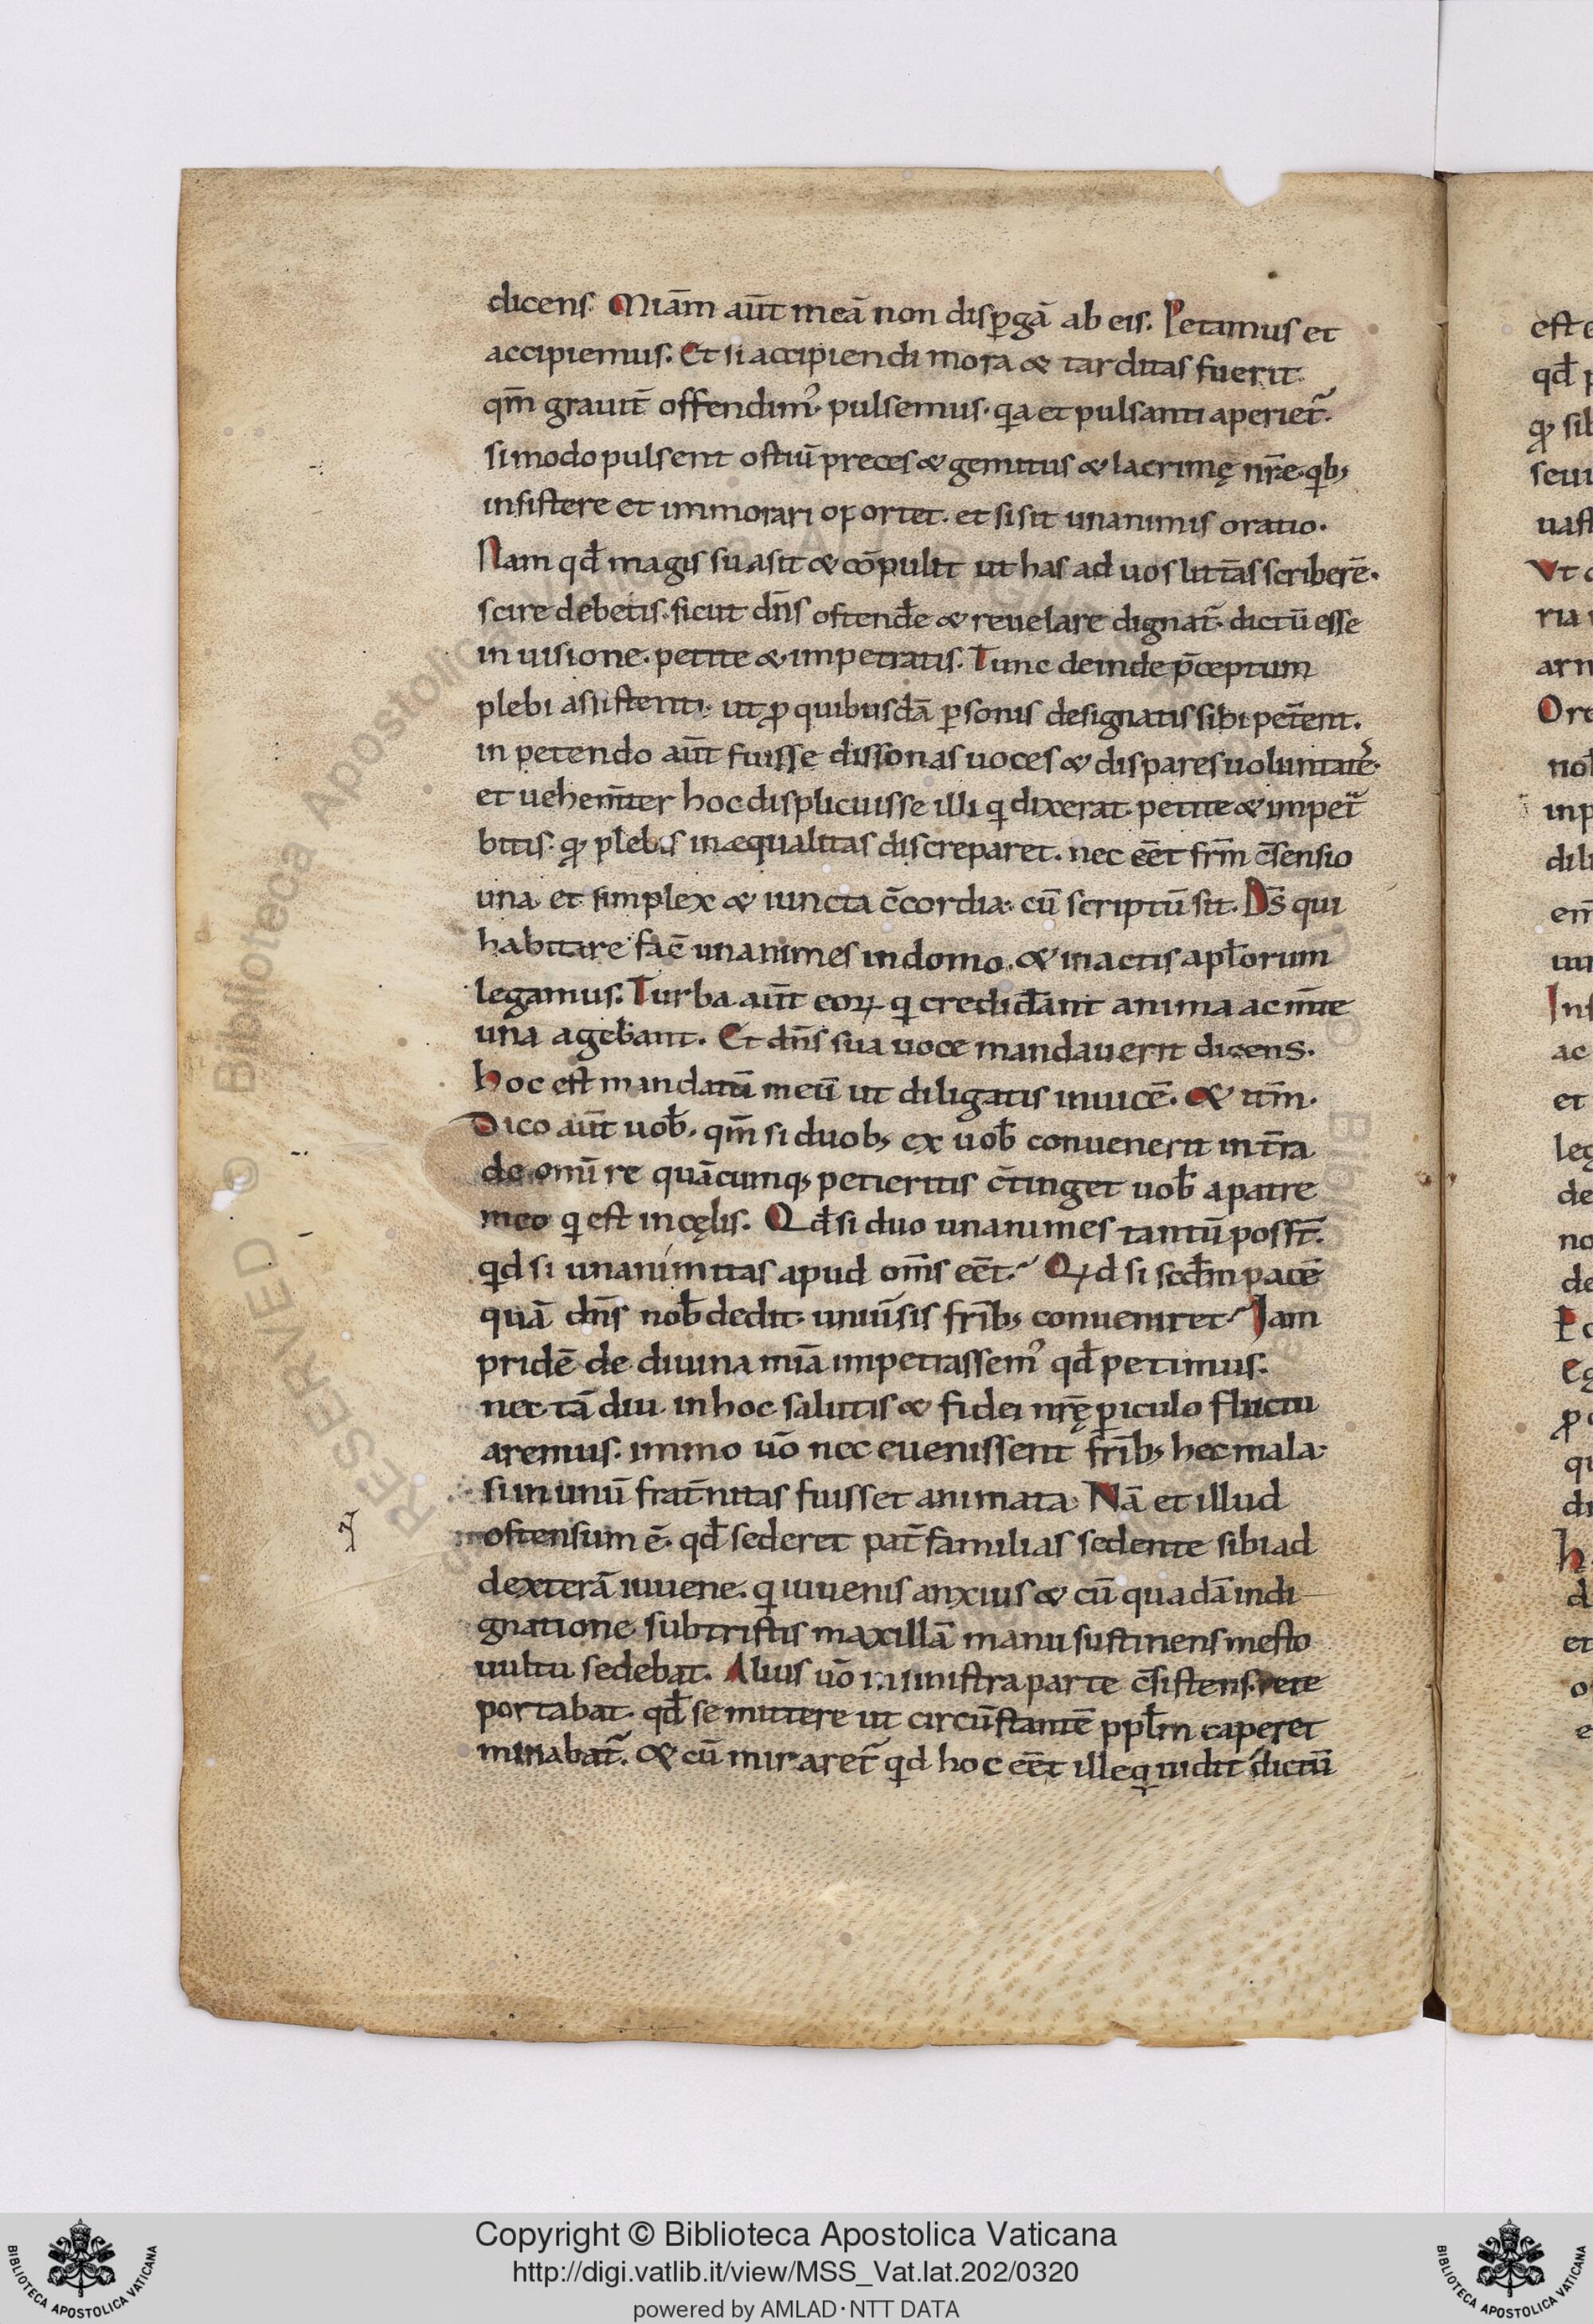 dicens. Miām aūt meā non disꝑgā ab eis. Petamus et
accipiemus. Et si accipiendi mora & tarditas fuerit.
qm̄ grauit̄ offendim᾽. pulsemus. qa et pulsanti aperiet̃.
si modo pulsent ostiū preces & gemitus & lacrimę nr̄e. qb;
insistere et immorari oportet. et si sit unanimis oratio.
Nam qđ magis suasit & cōpulit ut has ad uos litt̄as scriberē.
scire debetis. sicut dn̄s ostendē & reuelare dignat̃. dictū esse
in uisione. petite & impetratis. Tunc deinde p̄ceptum
plebi assistenti. ut ꝓ quibusdā ꝑsonis designatis sibi pet̄ent.
in petendo aūt fuisse dissonas uoces & dispares uoluntatē.
et uehem̄ter hoc displicuisse illi q dixerat. petite & impet̃
bitis. qꝫ plebis inæqualitas discreparet. nec eēt frm̄ c̄sensio
una et simplex & iuncta c̄cordia. cū scriptū sit. Ds̄ qui
habitare fac̄ unanimes in domo. & in actis apl̄orum
legamus. Turba aūt eoꝝ q credid̄ant anima ac m̄te
una agebant. Et dn̄s sua uoce mandauerit dicens.
hoc est mandatū meū ut diligatis inuicē. & itm̄.
Dico aūt uob̄. qm̄ si duob; ex uob̄ conuenerit in t̄ra
de omī re quācumq; petieritis c̄tinget uob̄ a patre
meo q est in cęlis. Qđ si duo unanimes tantū poss̄t.
qd si unanimitas apud om̄s eēt. Qd si scđm pacē
quā dn̄s nob̄ dedit. uniūsis fr̄ib; conueniret. Iam
pridē de diuina miā impetrassem᾽ qđ petimus.
nec tā diu in hoc salutis & fidei nrę̄ ꝑiculo fluctu
aremus. immo uō nec euenissent fr̄ib; hec mala.
si in unū frat̄nitas fuisset animata. Nā et illud
ostensum ē. qđ sederet pat̄ familias sedente sibi ad
dexterā iuuene. q iuuenis anxius & cū quadā indi
gnatione subtristis maxillā manu sustinens mesto
uultu sedebat. Alius uō in sinistra parte c̄sistens. rete
portabat. qđ se mittere ut circūstantē ppl̄m caperet
minabat̃. & cū miraret̃ qd hoc eēt ille q uidit dictū
Copyright © Biblioteca Apostolica Vaticana
http://digi.vatlib.it/view/MSS_Vat.lat.202/0320
powered by AMLAD·NTT DATA